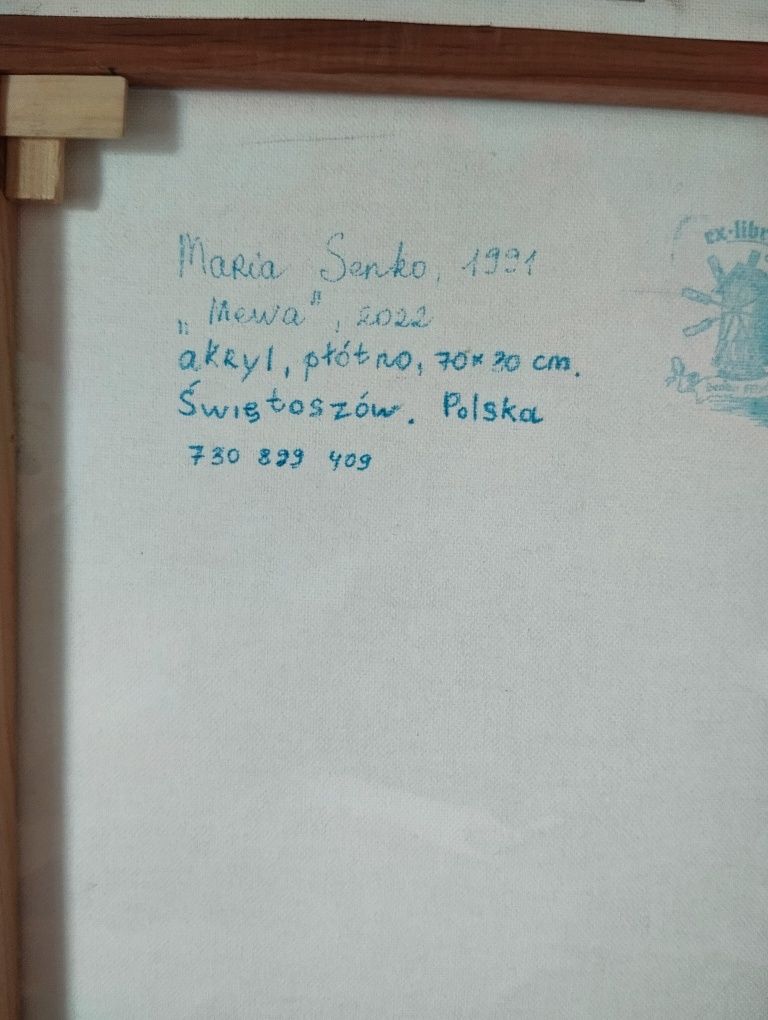 Maria Senko, 1991
„Mewa”, 2022
akryl, płótno, 70x30 cm.
Świętoszów. Polska
730 899 409
ex-libr